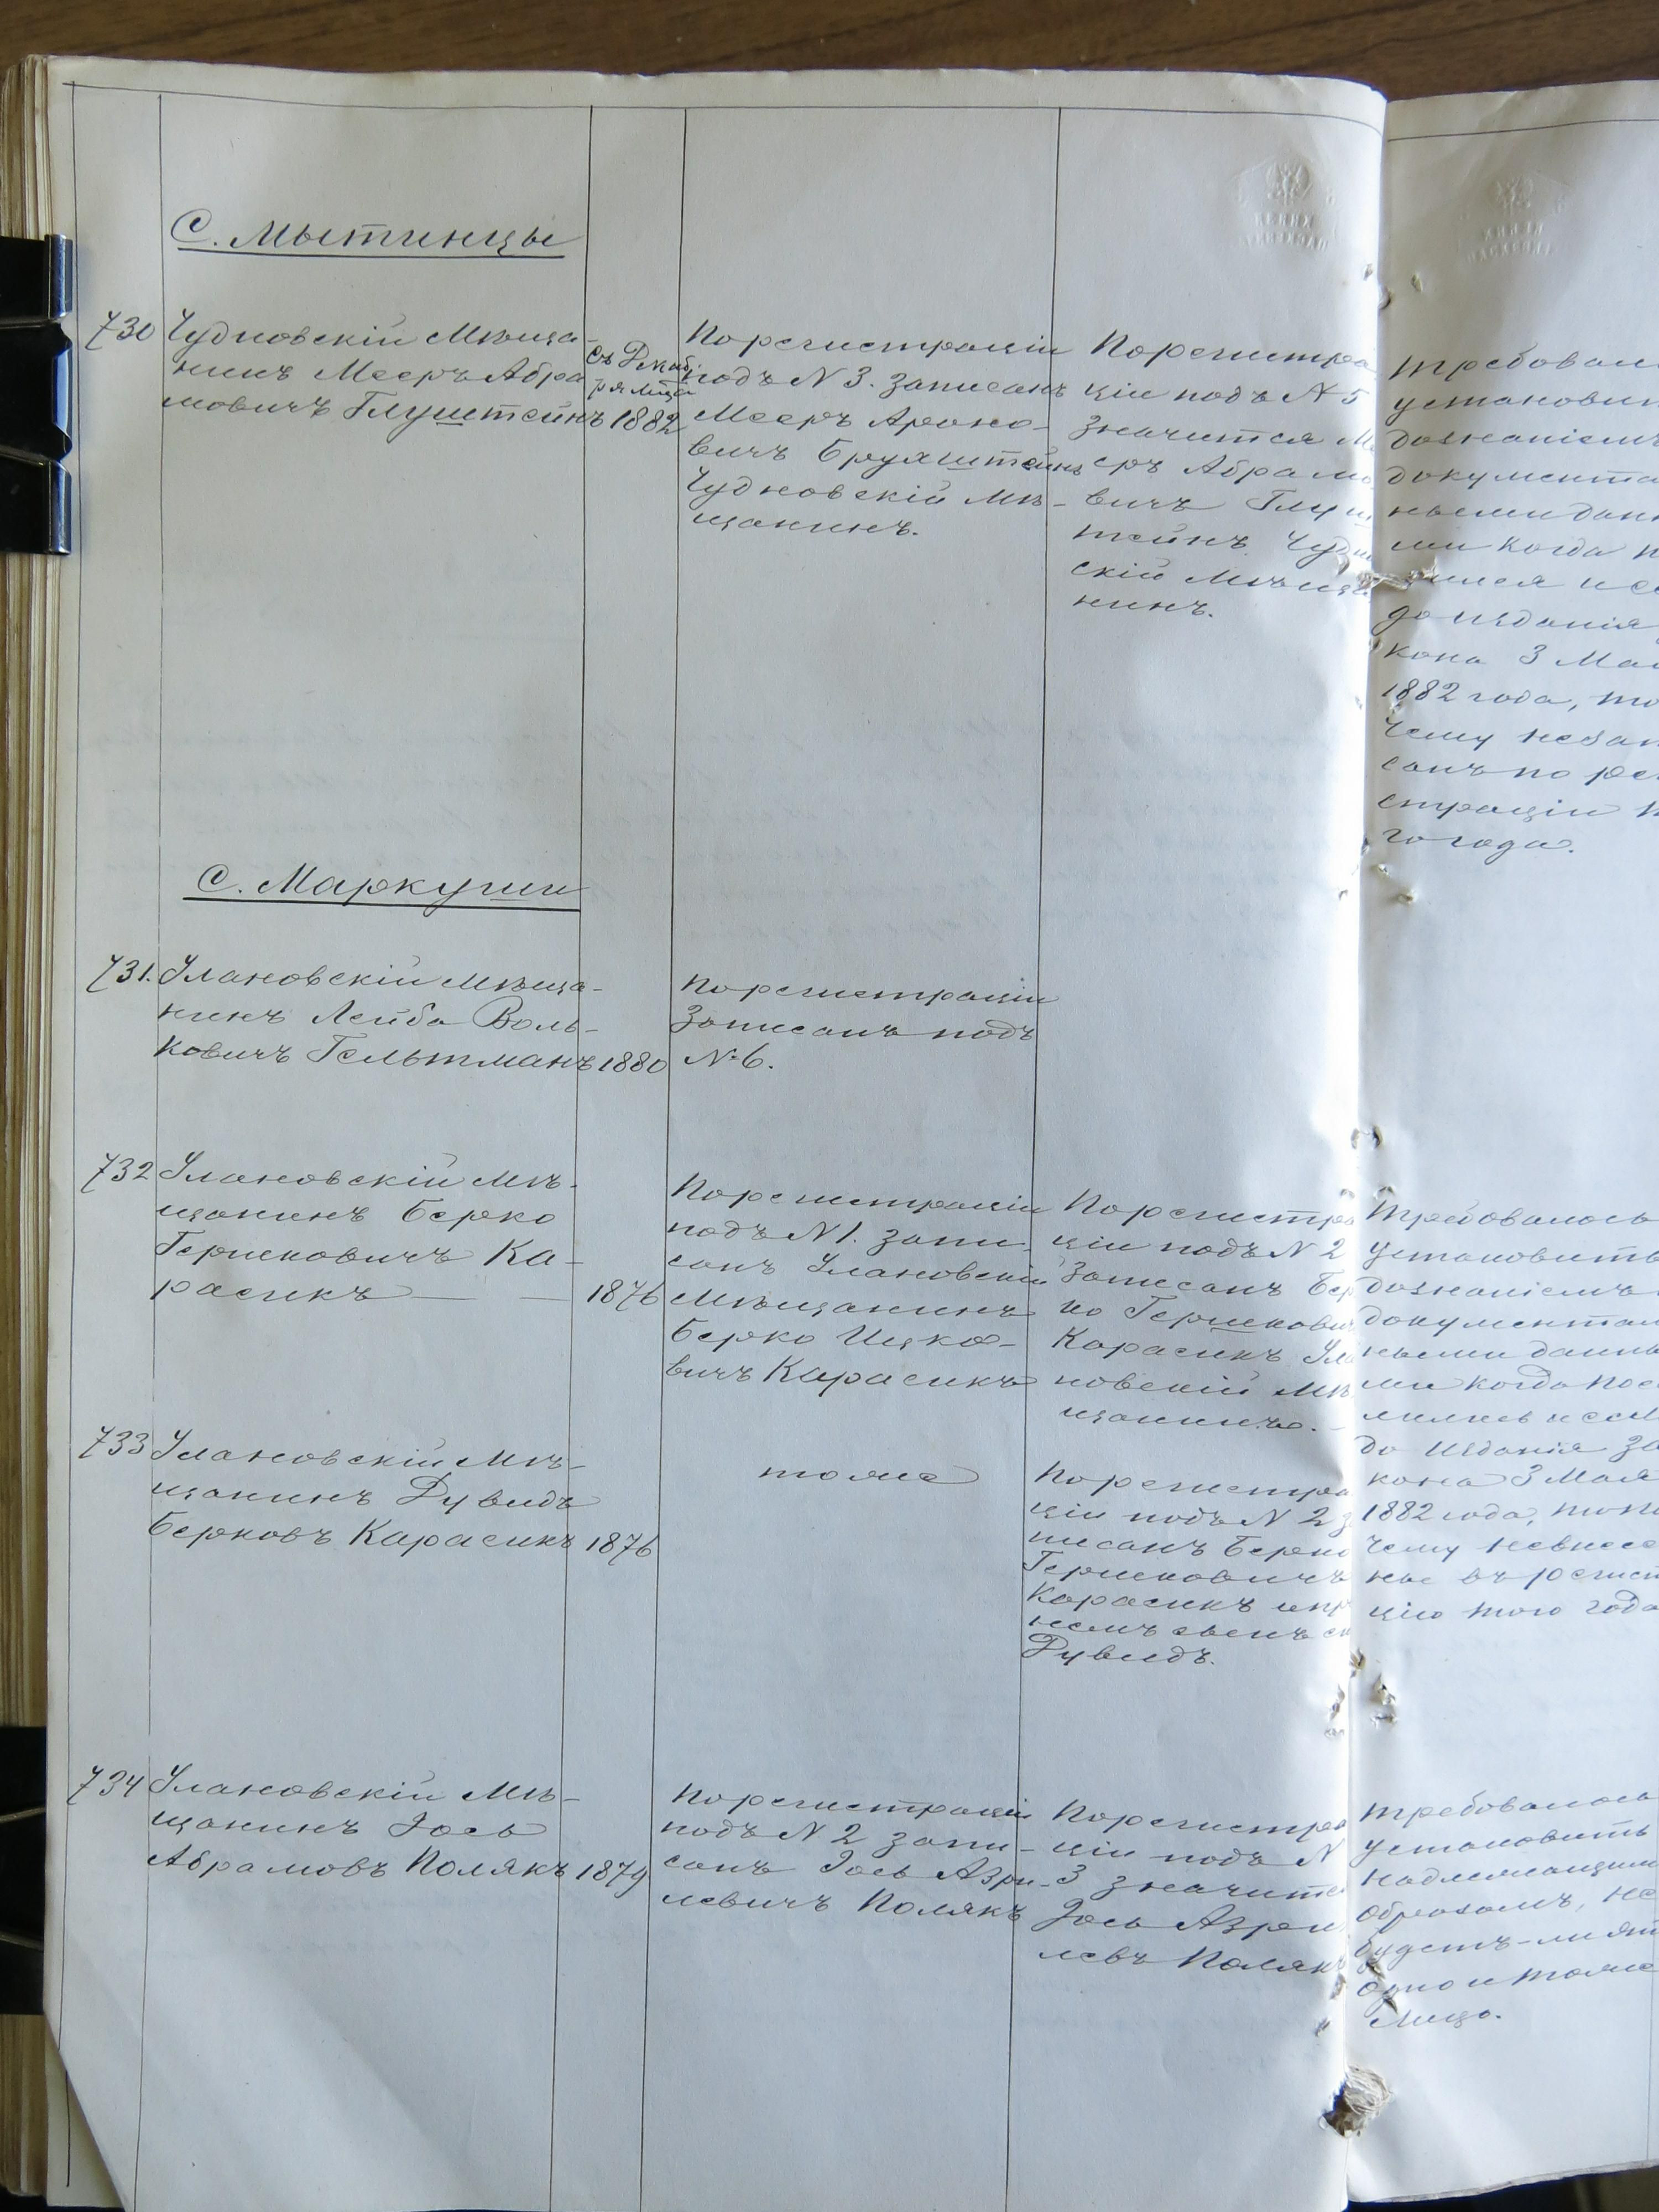 С. Мытинцы
730
Чудновскій Мѣща-
нинъ Мееръ Абра
мовичъ Глуштейнъ
Съ Декаб
ря мца
1882
По регистраціи
подъ N 3. записанъ
Мееръ Ароно-
вичъ Брухштейнъ
Чудновскій Мѣ-
щанинъ.
По регистра
ціи подъ N 5
значится Ме
еръ Абрамо
вичъ Глуш
тейнъ Чудно
скій Мѣща
нинъ.
требовал
установи
дознаніемъ
документа
ными дан
ми когда п
до изданія
кона 3 Мая
1882 года, то
чему незап
санъ по реги
страціи т
го года.
С. Маркуши
731.
Улановскій Мѣща-
нинъ Лейба Воль-
ковичъ Гельтманъ
1880
По регистраціи
Записанъ подъ
N 6.
732
Улановскій Мѣ-
щанинъ Берко
Гершковичъ Ка-
расикъ — —
1876
По регистраціи
подъ N 1. запи
санъ Улановскій
Мѣщанинъ
Берко Ицко-
вичъ Карасикъ
По регистра
ціи подъ N 2
Записанъ Бер
ко Гершкович
Карасикъ Ула
новскій Мѣ
щанинъ. -
требовалось
установить
дознаніемъ
документал
ными данны
ми когда посе
лились и если
до изданія за
кона 3 Мая
1882 года, то по
чему невнесе
ны въ регист
цію того года
733
Улановскій Мѣ-
щанинъ Дувидъ
Берковъ Карасикъ
1876
тоже
По регистра
ціи подъ N 2 з
писанъ Берко
Гершковичъ
Карасикъ и пр
немъ сынъ е
Дувидъ.
734
Улановскій Мѣ-
щанинъ Іось
Абрамовъ Полякъ
1879
По регистраціи
подъ N 2 запи-
санъ Іось Азри-
левичъ Полякъ
По регистра
ціи подъ N
3 значитс
Іось Азри
левъ Поляк
требовалось
установить
надлежащим
образомъ, не
будетъ-ли эт
одно и тоже
лицо.